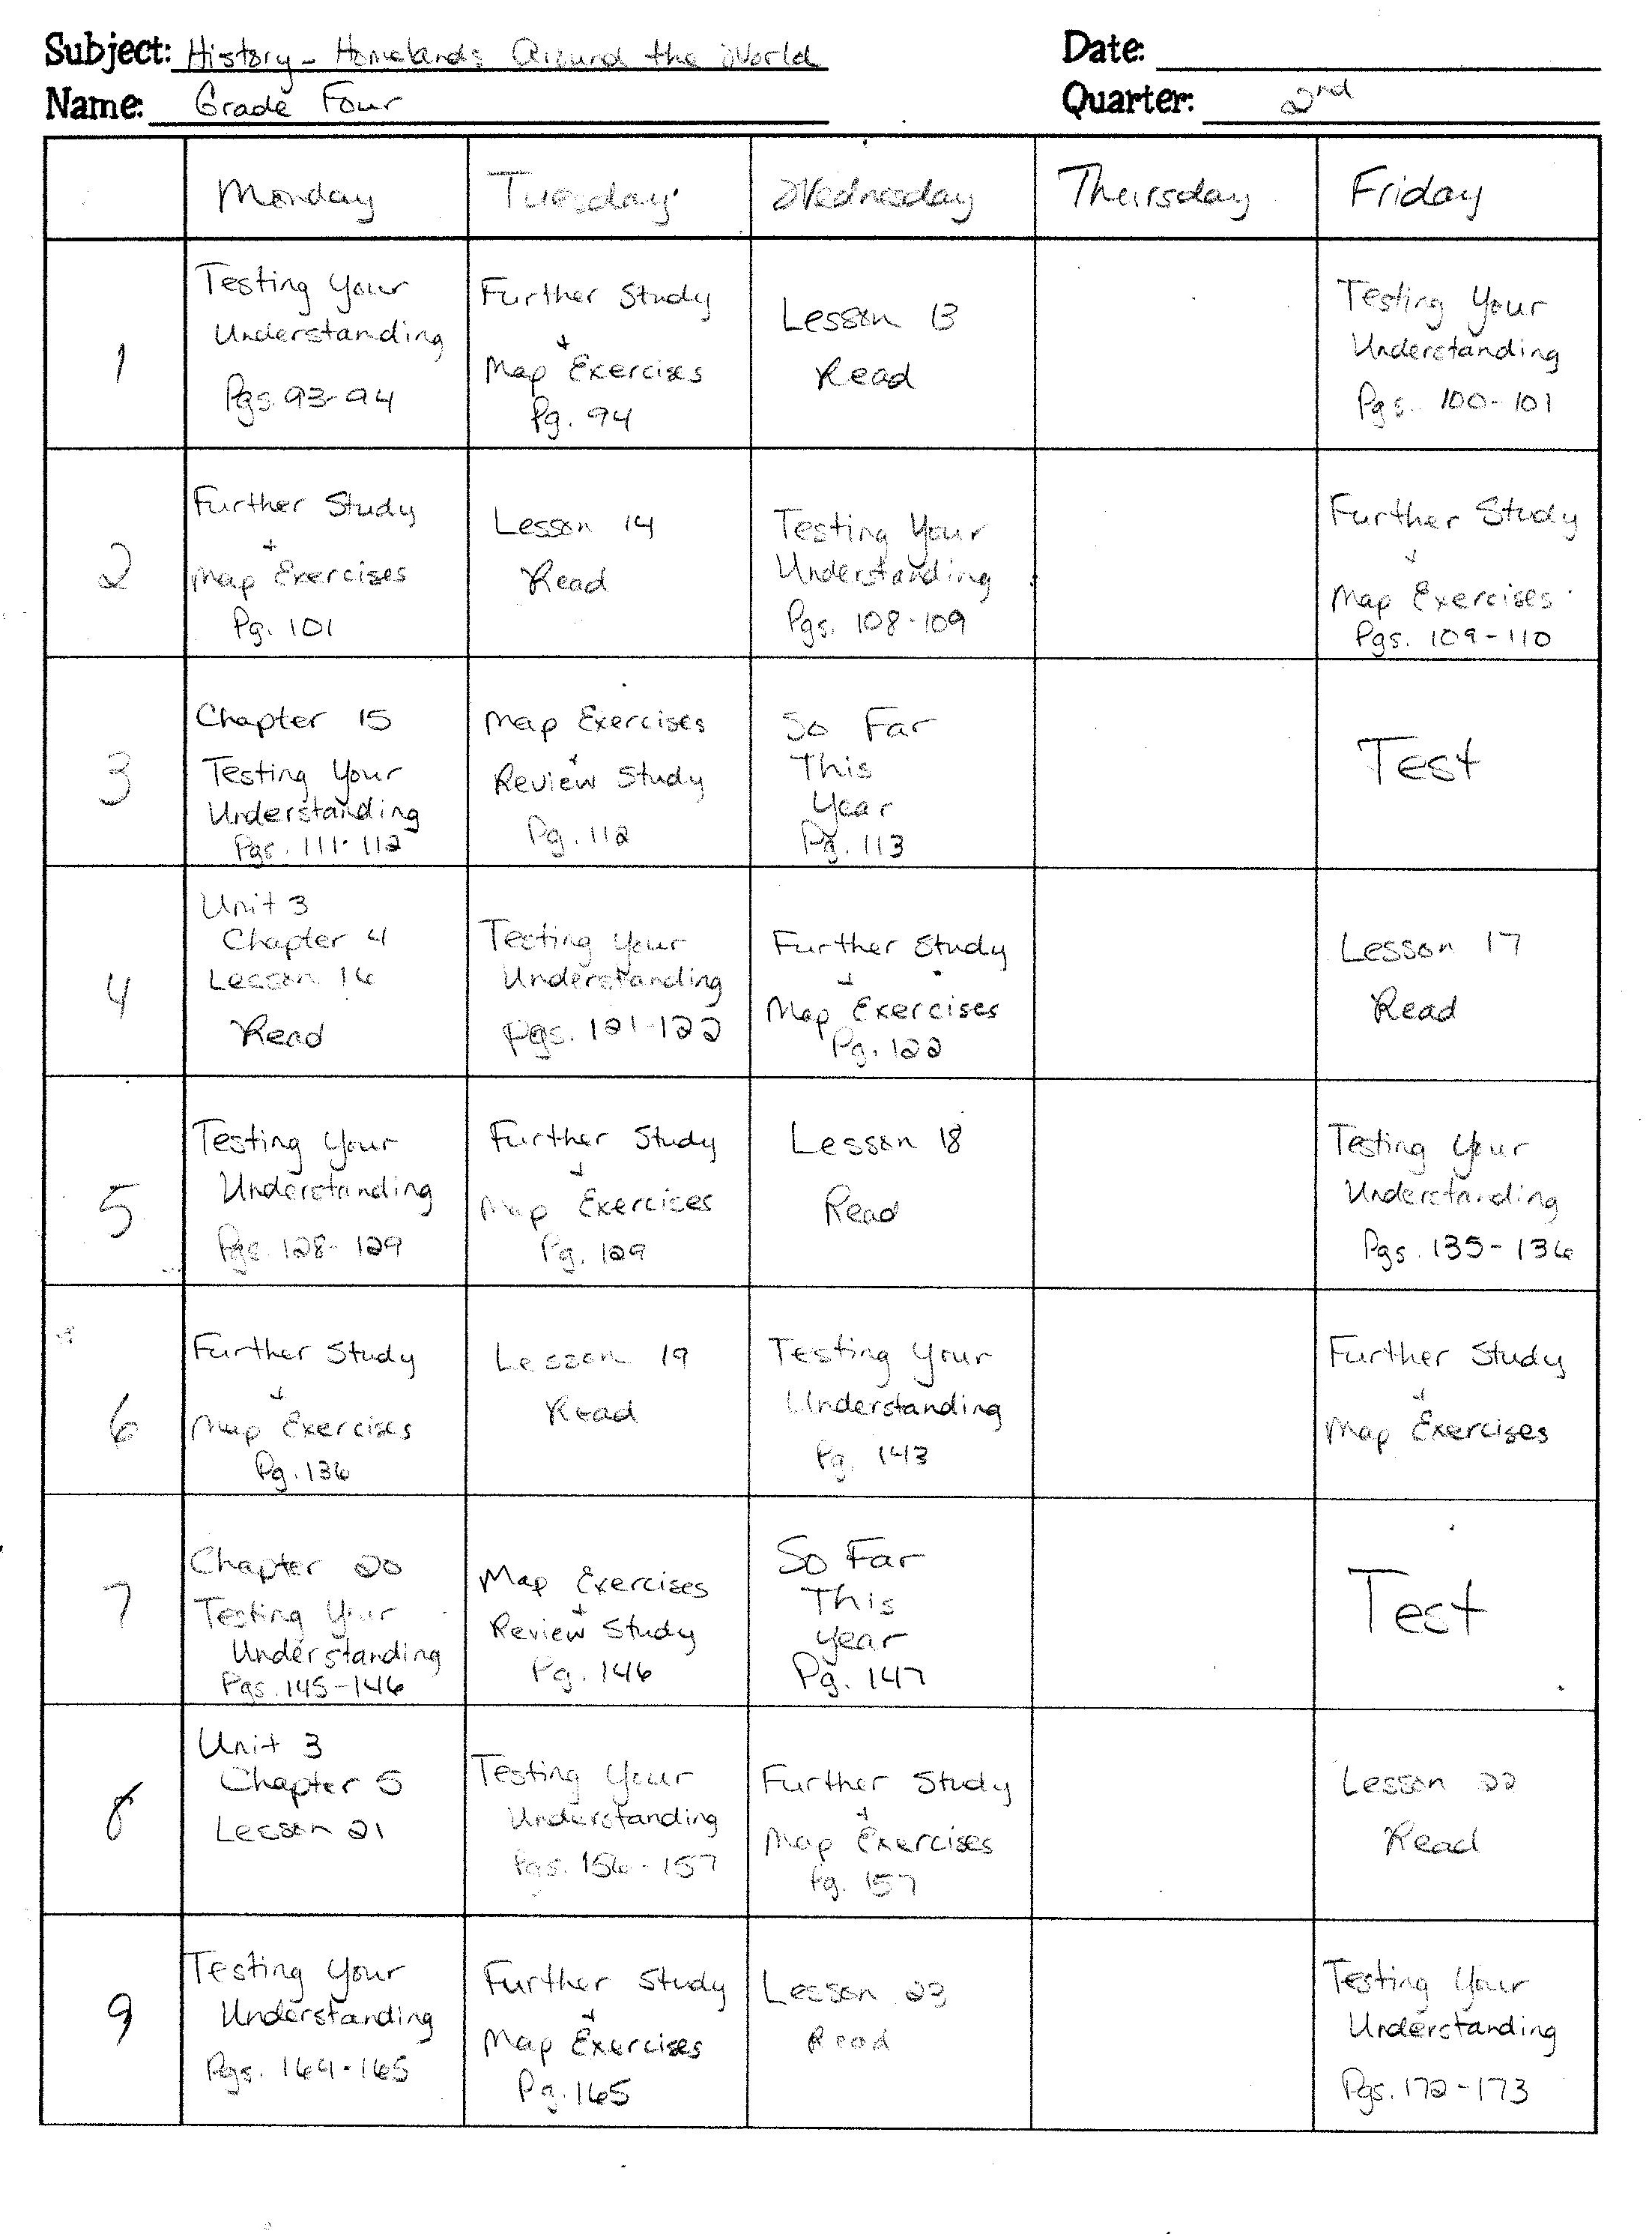 Subject: History - Homelands Around the World
Date:
Name: Grade Four
Quarter: 2nd
Monday
Tuesday
Wednesday
Thursday
Friday
1
Testing Your
Understanding
Pgs. 93-94
Further Study
+
Map Exercises
Pg. 94
Lesson 13
Read
Testing Your
Understanding
Pgs. 100-101
2
Further Study
+
Map Exercises
Pg. 101
Lesson 14
Read
Testing Your
Understanding
Pgs. 108-109
Further Study
+
Map Exercises
Pgs. 109-110
3
Chapter 15
Testing Your
Understanding
Pgs. 111-112
Map Exercises
+
Review Study
Pg. 112
So Far
This
Year
Pg. 113
Test
4
Unit 3
Chapter 4
Lesson 16
Read
Testing Your
Understanding
Pgs. 121-122
Further Study
+
Map Exercises
Pg. 122
Lesson 17
Read
5
Testing Your
Understanding
Pgs. 128-129
Further Study
+
Map Exercises
Pg. 129
Lesson 18
Read
Testing Your
Understanding
Pgs. 135-136
6
Further Study
+
Map Exercises
Pg. 136
Lesson 19
Read
Testing Your
Understanding
Pg. 143
Further Study
+
Map Exercises
7
Chapter 20
Testing Your
Understanding
Pgs. 145-146
Map Exercises
+
Review Study
Pg. 146
So Far
This
Year
Pg. 147
Test
8
Unit 3
Chapter 5
Lesson 21
Testing Your
Understanding
Pgs. 156-157
Further Study
+
Map Exercises
Pg. 157
Lesson 22
Read
9
Testing Your
Understanding
Pgs. 164-165
Further Study
+
Map Exercises
Pg. 165
Lesson 23
Read
Testing Your
Understanding
Pgs. 172-173